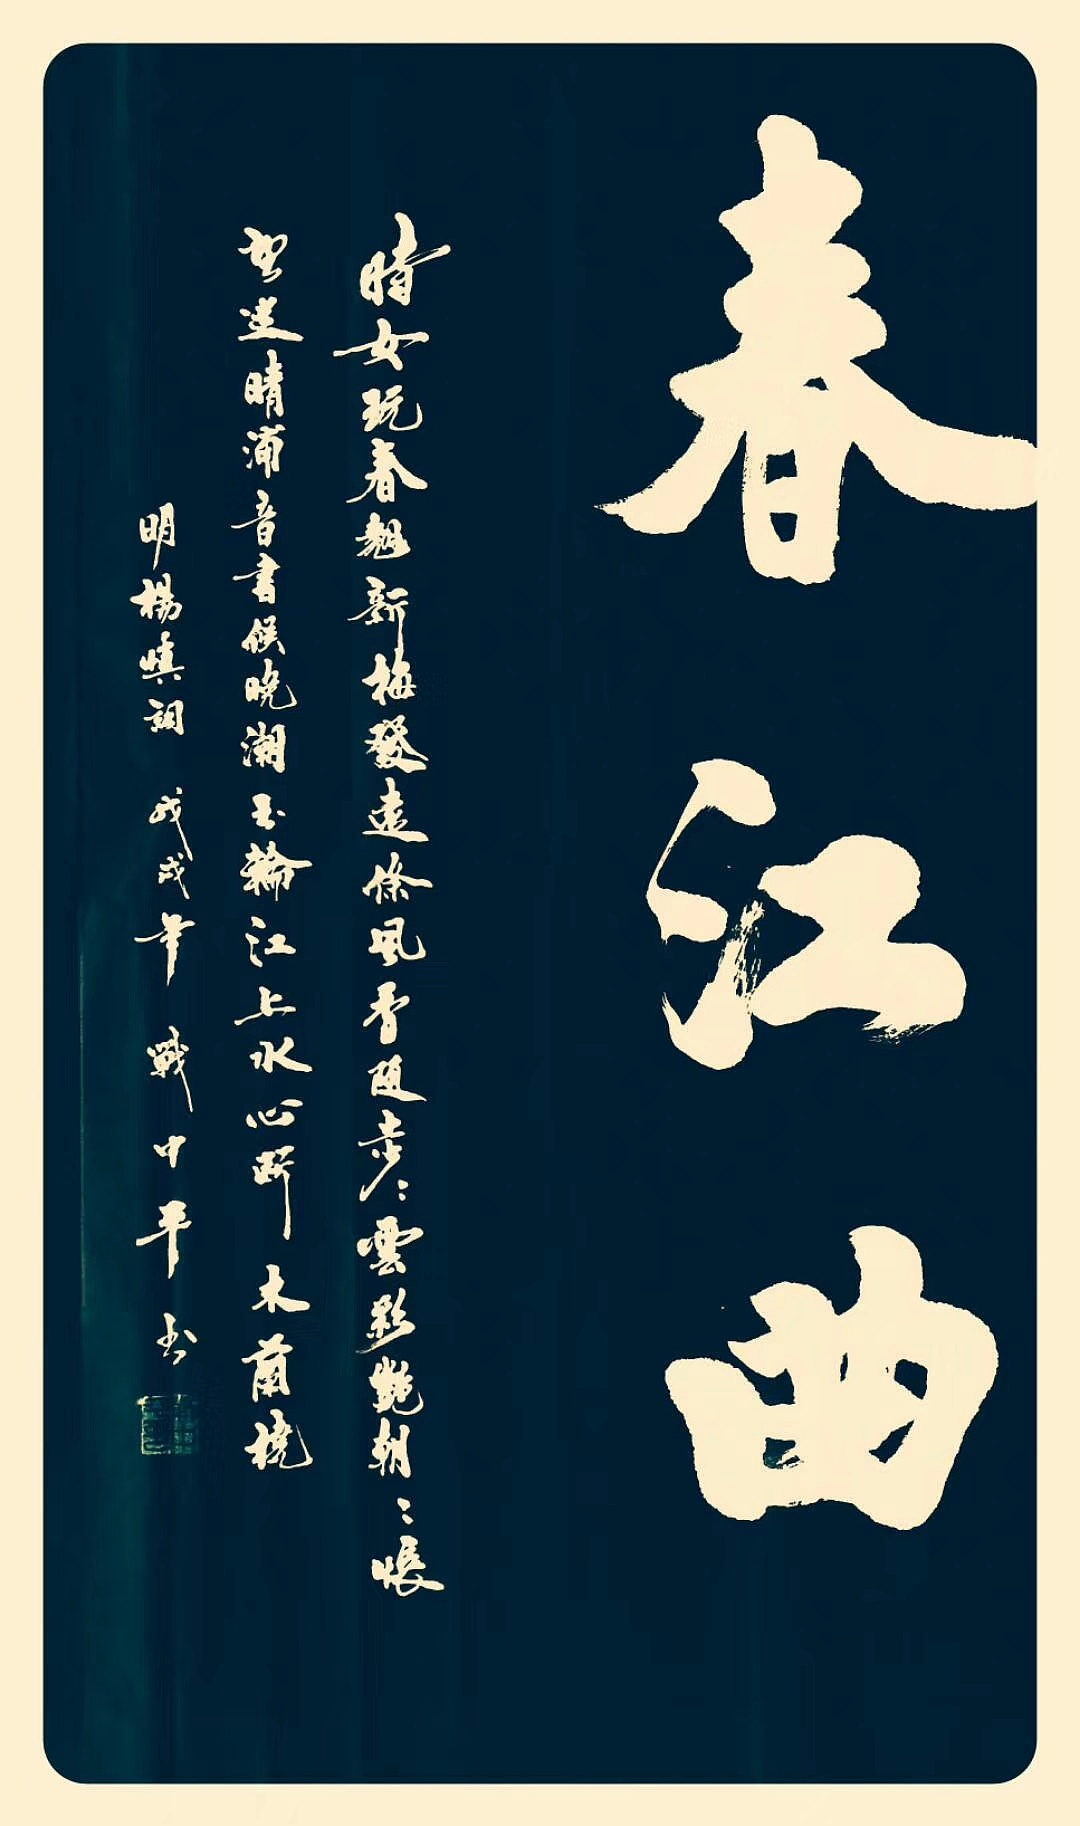 春江曲
時女玩春翘新梅發遠條風香随步〻雲彩艷朝〻悵
望迷晴浦音書候晚潮玉輪江上水心断木蘭橈
明楊慎詞 戊戌年 戰中平书